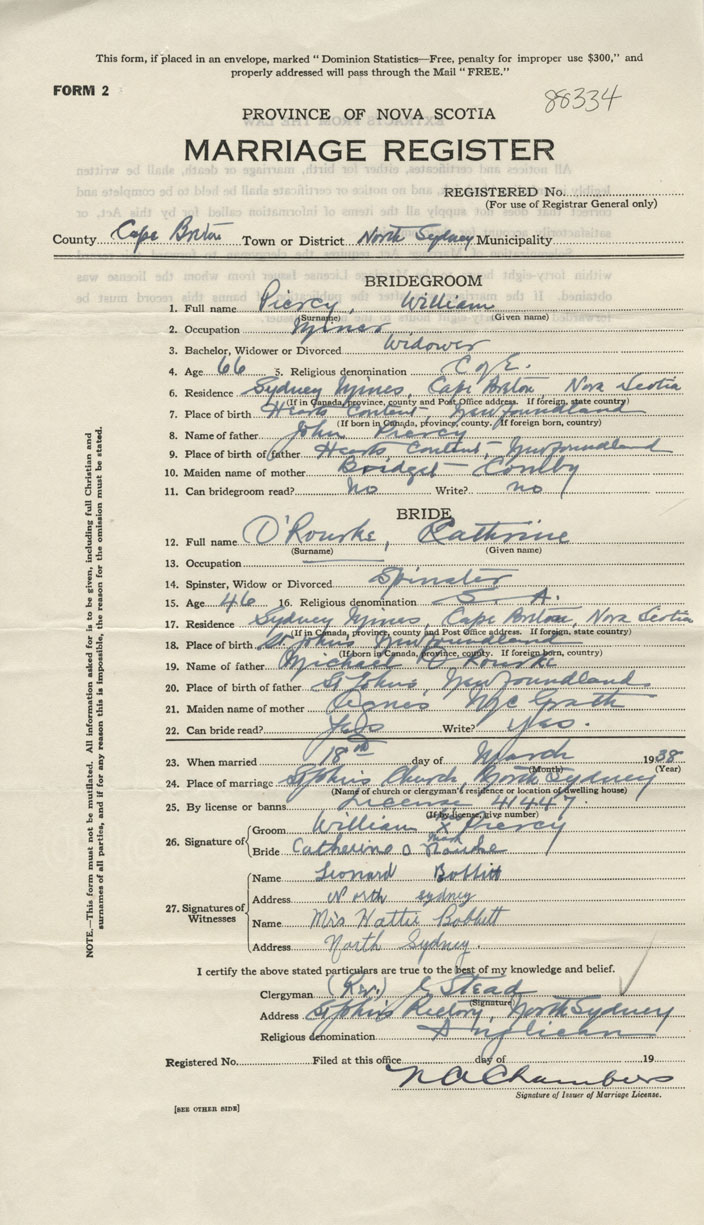 This form, if placed in an envelope, marked "Dominion Statistics—Free, penalty for improper use $300," and
properly addressed will pass through the Mail "FREE."
FORM 2
88334
PROVINCE OF NOVA SCOTIA
MARRIAGE REGISTER
REGISTERED No.
(For use of Registrar General only)
County Cape Breton Town or District North Sydney Municipality
BRIDEGROOM
1. Full name Piercy, William
(Surname) (Given name)
2. Occupation Miner
3. Bachelor, Widower or Divorced Widower
4. Age 66 5. Religious denomination C of E.
6. Residence Sydney Mines, Cape Breton Nova Scotia
(If in Canada, province, county and Post Office address. If foreign, state country)
7. Place of birth Hearts Content, Newfoundland
(If born in Canada, province, county. If foreign born, country)
8. Name of father John Piercy
9. Place of birth of father Hearts Content, Newfoundland
10. Maiden name of mother Bridget
11. Can bridegroom read? no Write? no
BRIDE
12. Full name O'Rourke, Cathrine
(Surname) (Given name)
13. Occupation
14. Spinster, Widow or Divorced Spinster
15. Age 46 16. Religious denomination S. A.
17. Residence Sydney Mines, Cape Breton, Nova Scotia
(If in Canada, province, county and Post Office address. If foreign, state country)
18. Place of birth St Johns Newfoundland
(If born in Canada, province, county. If foreign born, country)
19. Name of father Michael O'Rourke
20. Place of birth of father St Johns, Newfoundland
21. Maiden name of mother Agnes Mc Grath
22. Can bride read? Yes Write? Yes.
23. When married 18th day of March 1938
(Month) (Year)
24. Place of marriage St John's Church, North Sydney
(Name of church or clergyman's residence or location of dwelling house)
25. By license or banns License 41447
(If by license, give number)
26. Signature of
Groom William X Piercy
mark
Bride Catherine O Rourke
27. Signatures of Witnesses
Name Leonard Bobbitt
Address North sydney
Name Mrs Hattie Bobbitt
Address North Sydney.
I certify the above stated particulars are true to the best of my knowledge and belief.
Clergyman (Rev.) Stead
(Signature)
Address St John's Rectory, North Sydney
Religious denomination Anglican
Registered No. Filed at this office day of 19
N A Chambers
Signature of Issuer of Marriage License.
[SEE OTHER SIDE]
NOTE.—This form must not be mutilated. All information asked for is to be given, including full Christian and
surnames of all parties, and if for any reason this is impossible, the reason for the omission must be stated.